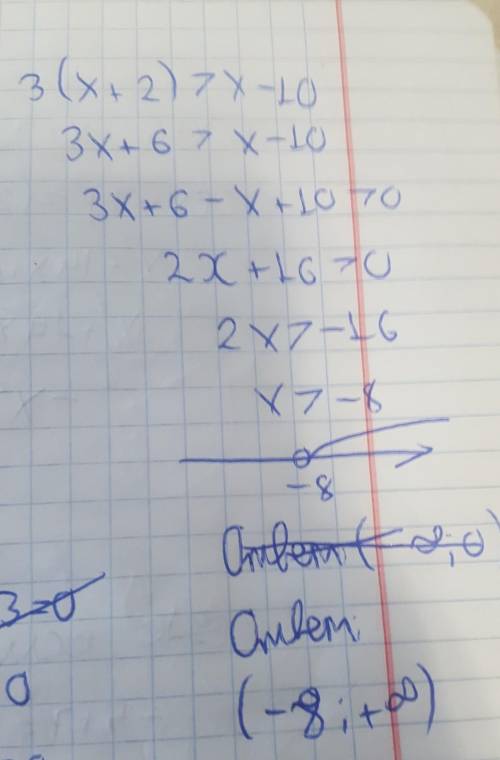 3(x+2)>x-10
3x+6>x-10
3x+6-x+10>0
2x+16>0
2x>-16
x>-8
-8
Ответ (-∞;0)
3=0
Ответ
0
(-8;+∞)